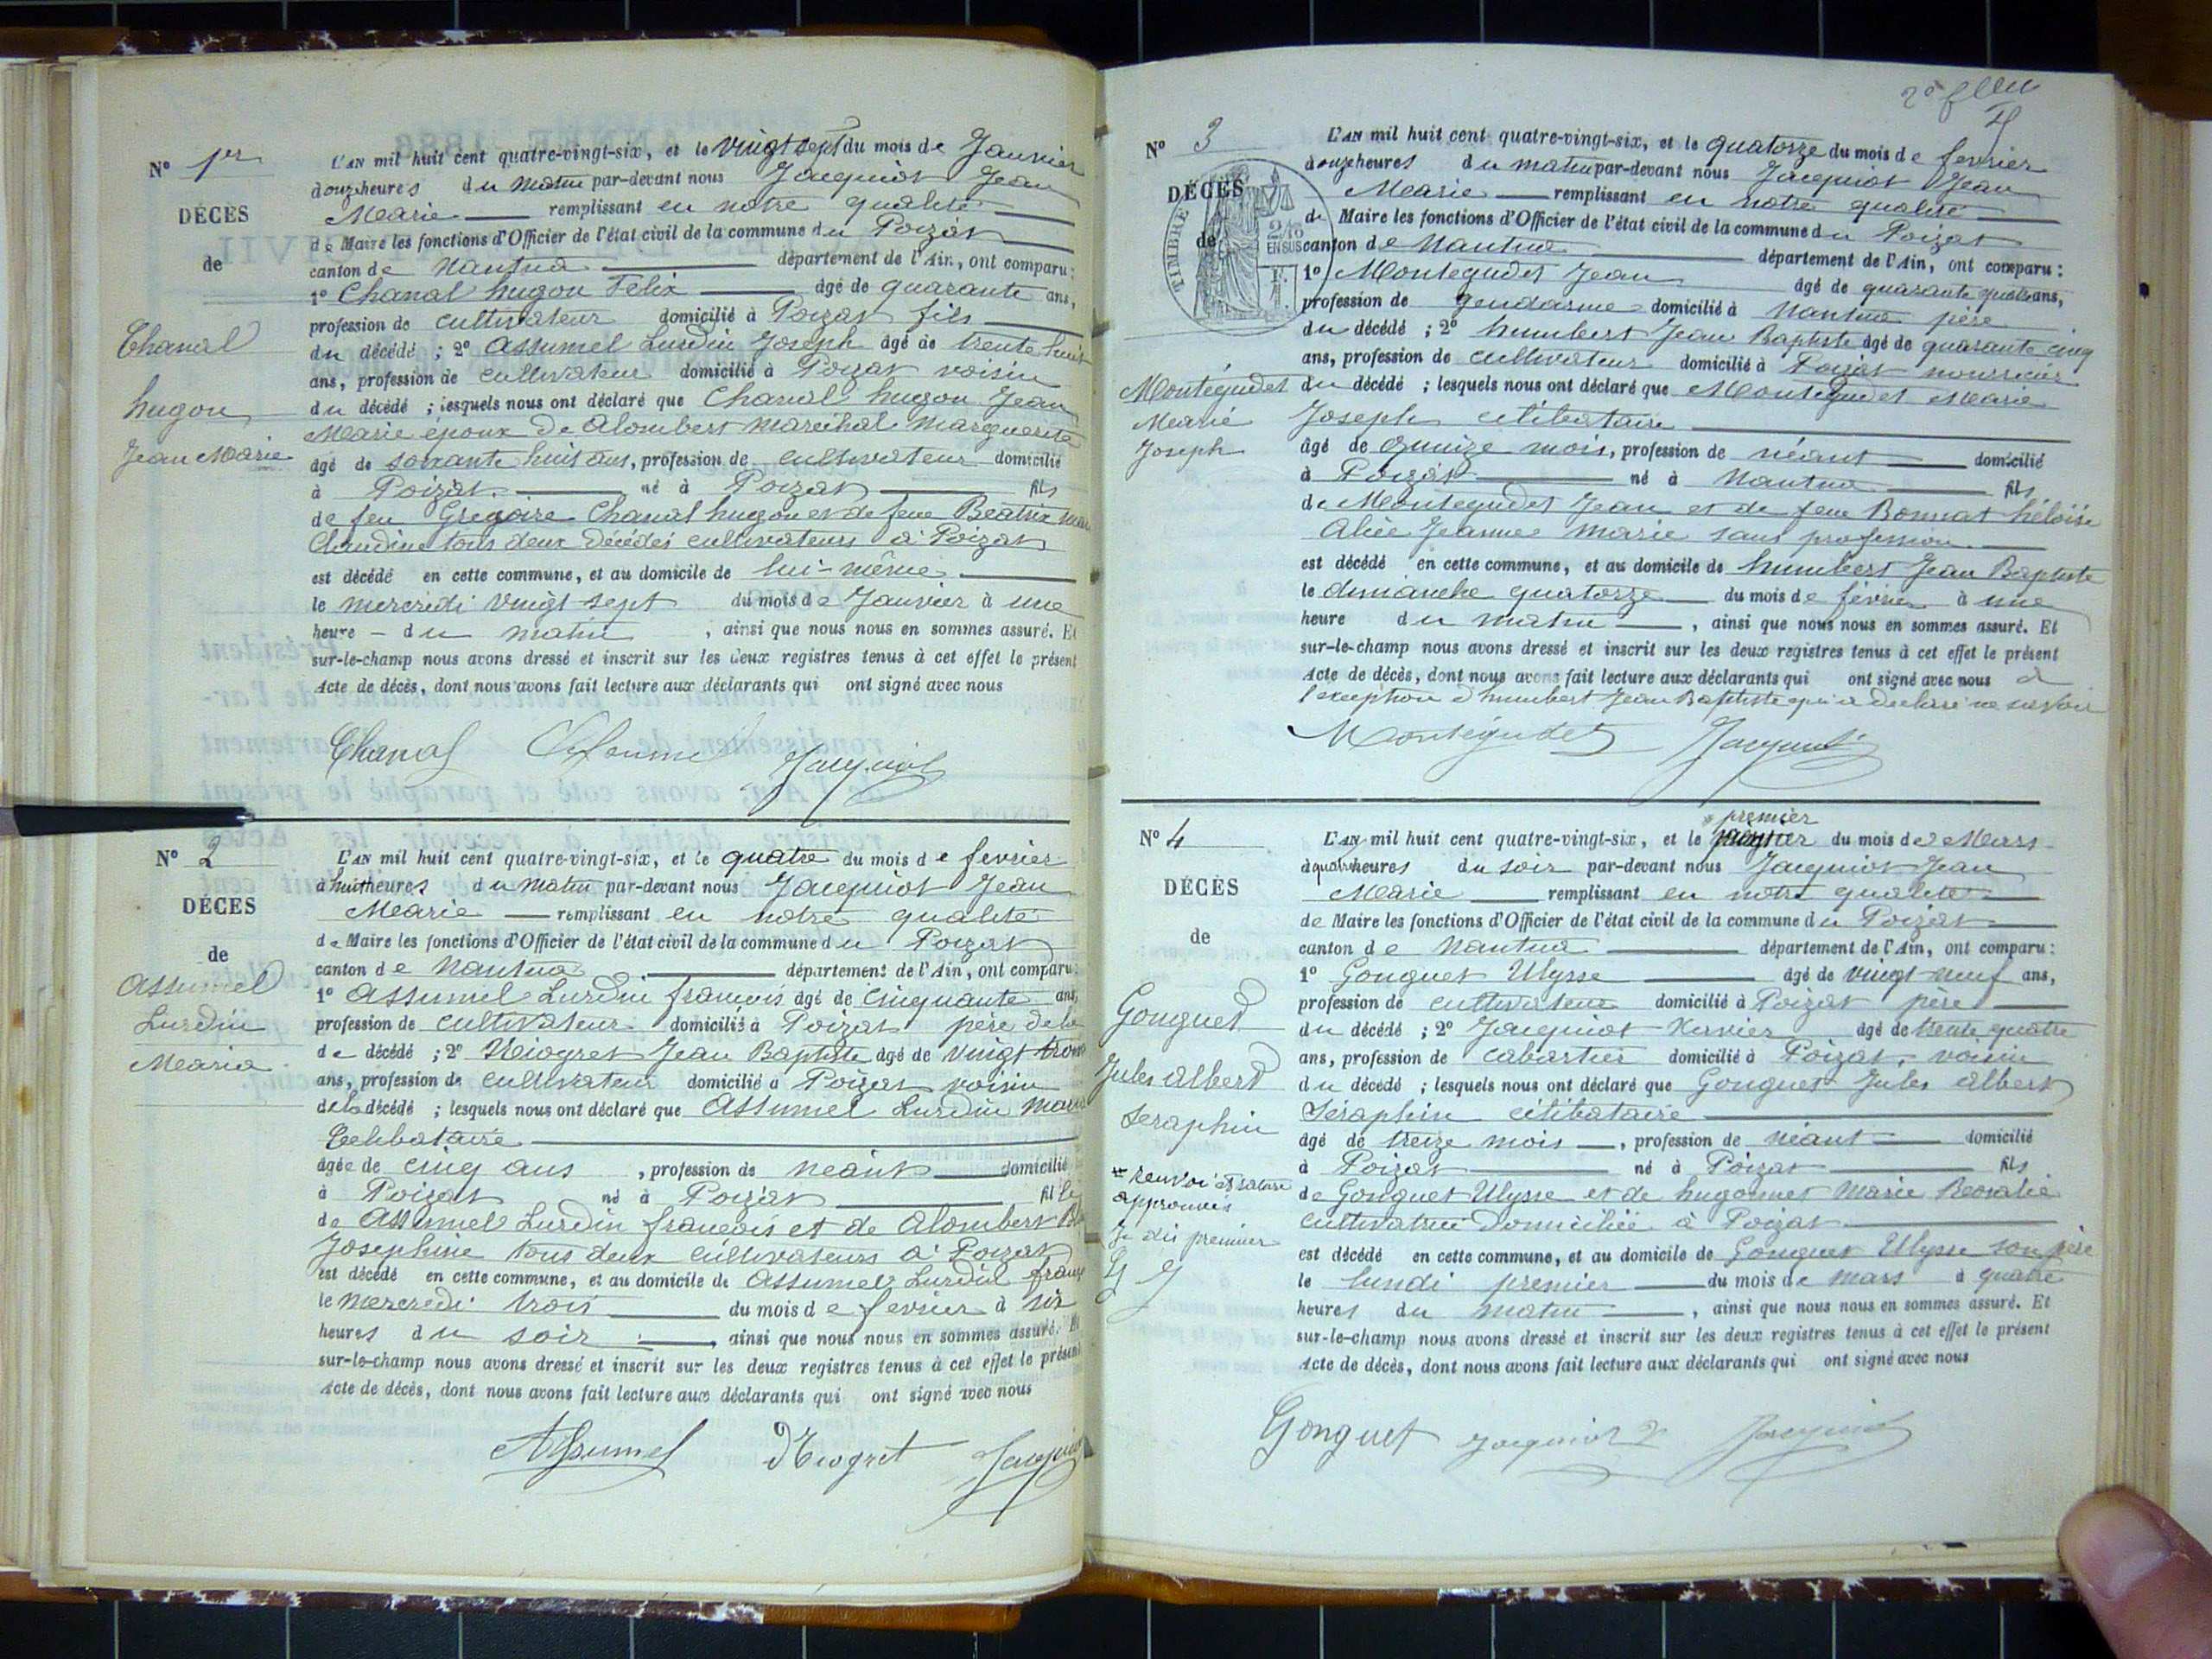 N° 1er
DÉCÈS
de
Chanal
hugon
Jean Marie
L'AN mil huit cent quatre-vingt-six, et le vingt sept du mois de Janvier
à onze heures du matin par-devant nous Jacquiot Jean
Marie remplissant en notre qualité
de Maire les fonctions d'Officier de l'état civil de la commune du Poizat
canton de Nantua département de l'Ain, ont comparu :
1° Chanal hugon Félix âgé de quarante ans,
profession de cultivateur domicilié à Poizat fils
du décédé ; 2° Assumel Lurdin Joseph âgé de trente huit
ans, profession de cultivateur domicilié à Poizat voisin
du décédé ; lesquels nous ont déclaré que Chanal hugon Jean
Marie époux de Alombert maréchal Marguerite
âgé de soixante huit ans, profession de cultivateur domicilié
à Poizat né à Poizat fils
de feu Grégoire Chanal hugon et de feue Béatrix
Claudine tous deux décédés cultivateurs à Poizat
est décédé en cette commune, et au domicile de lui-même
le mercredi vingt sept du mois de Janvier à une
heure du matin, ainsi que nous nous en sommes assuré. Et
sur-le-champ nous avons dressé et inscrit sur les deux registres tenus à cet effet le présent
Acte de décès, dont nous avons fait lecture aux déclarants qui ont signé avec nous
Chanal Assumel Jacquiot
N° 2
DÉCÈS
de
Assumel
Lurdin
Maria
L'AN mil huit cent quatre-vingt-six, et le quatre du mois de fevrier
à huit heures du matin par-devant nous Jacquiot Jean
Marie remplissant en notre qualité
de Maire les fonctions d'Officier de l'état civil de la commune du Poizat
canton de Nantua département de l'Ain, ont comparu :
1° Assumel Lurdin françois âgé de cinquante ans,
profession de cultivateur domicilié à Poizat père de la
de décédé ; 2° Niogret Jean Baptiste âgé de vingt trois
ans, profession de cultivateur domicilié à Poizat voisin
de la décédé ; lesquels nous ont déclaré que Assumel Lurdin Maria
Celibataire
âgée de cinq ans, profession de néant domicilié
à Poizat né à Poizat fille
de Assumel Lurdin françois et de Alombert
Josephine tous deux cultivateurs à Poizat
est décédé en cette commune, et au domicile de Assumel Lurdin franç
le mercredi trois du mois de fevrier à six
heures du soir, ainsi que nous nous en sommes assuré. Et
sur-le-champ nous avons dressé et inscrit sur les deux registres tenus à cet effet le présent
Acte de décès, dont nous avons fait lecture aux déclarants qui ont signé avec nous
Assumel Niogret Jacquiot
2e
N° 3
DÉCÈS
de
TIMBRE
2/10
EN SUS
Montégudet
Marie
Joseph
L'AN mil huit cent quatre-vingt-six, et le quatorze du mois de fevrier
à onze heures du matin par-devant nous Jacquiot Jean
Marie remplissant en notre qualité
de Maire les fonctions d'Officier de l'état civil de la commune du Poizat
canton de Nantua département de l'Ain, ont comparu :
1° Montegudet Jean âgé de quarante quatre ans,
profession de gendarme domicilié à Nantua père
du décédé ; 2° humbert Jean Baptiste âgé de quarante cinq
ans, profession de cultivateur domicilié à Poizat nourricier
du décédé ; lesquels nous ont déclaré que Montégudet Marie
Joseph célibataire
âgé de quinze mois, profession de néant domicilié
à Poizat né à Nantua fils
de Montegudet Jean et de feue Bonnat héloïse
Alice Jeanne Marie sans profession
est décédé en cette commune, et au domicile de humbert Jean Baptiste
le dimanche quatorze du mois de fevrier à une
heure du matin, ainsi que nous nous en sommes assuré. Et
sur-le-champ nous avons dressé et inscrit sur les deux registres tenus à cet effet le présent
Acte de décès, dont nous avons fait lecture aux déclarants qui ont signé avec nous à
l'exception d'humbert Jean Baptiste qui a déclaré ne savoir
Montégudet Jacquiot
N° 4
DÉCÈS
de
Gonguet
Jules Albert
Seraphin
renvoi et rature
approuvés
Je dis premier
G J
premier
L'AN mil huit cent quatre-vingt-six, et le du mois de Mars
à quatre heures du soir par-devant nous Jacquiot Jean
Marie remplissant en notre qualité
de Maire les fonctions d'Officier de l'état civil de la commune du Poizat
canton de Nantua département de l'Ain, ont comparu :
1° Gonguet Ulysse âgé de vingt-neuf ans,
profession de cultivateur domicilié à Poizat père
du décédé ; 2° Jacquiot Xavier âgé de trente quatre
ans, profession de cabartier domicilié à Poizat, voisin
du décédé ; lesquels nous ont déclaré que Gonguet Jules Albert
Séraphin célibataire
âgé de treize mois, profession de néant domicilié
à Poizat né à Poizat fils
de Gonguet Ulysse et de hugonnet Marie Rosalie
cultivatrice domiciliée à Poizat
est décédé en cette commune, et au domicile de Gonguet Ulysse son père
le lundi premier du mois de mars à quatre
heures du matin, ainsi que nous nous en sommes assuré. Et
sur-le-champ nous avons dressé et inscrit sur les deux registres tenus à cet effet le présent
Acte de décès, dont nous avons fait lecture aux déclarants qui ont signé avec nous
Gonguet Jacquiot X Jacquiot